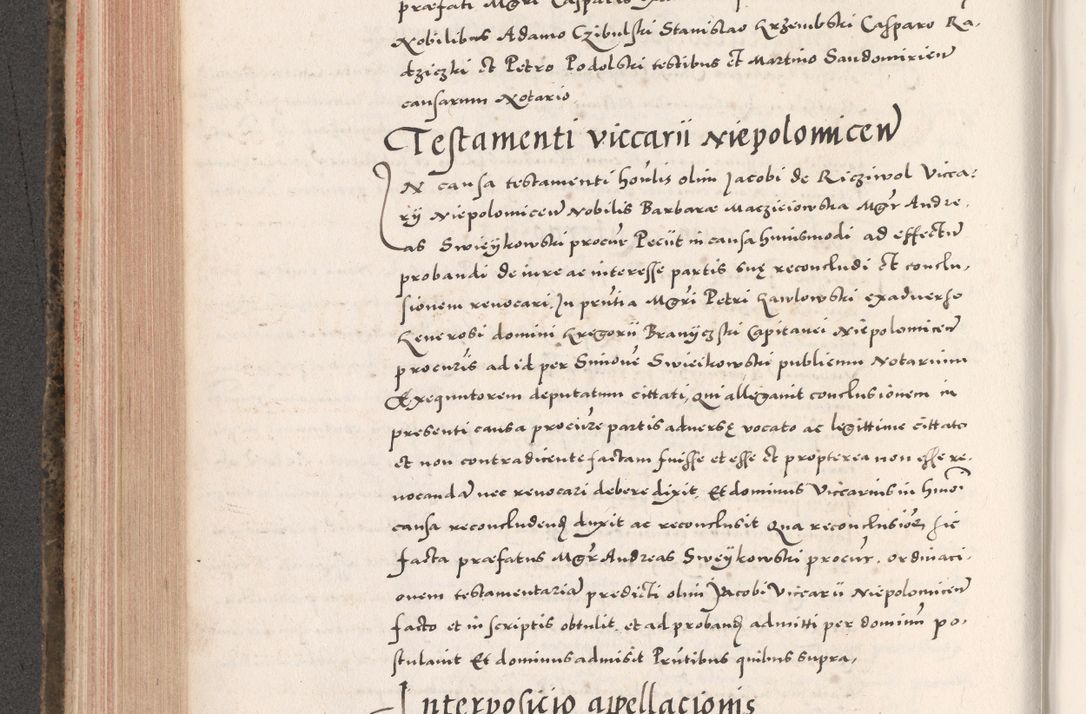 præfati Mgri Casparis
Nobilibus Adamo Czibulski Stanislao Krzembski Casparo Ra-
dziczki et Petro Podolski testibus et Martino Sandomirien
causarum Notario
Testamenti viccarii Niepolomicen
IN causa testamenti honlis olim Jacobi de Ricziwol Vicca-
rij Niepolomicen Nobilis Barbaræ Maczieiowska Mgr Andre-
as Swieykowski procur Peciit in causa huiusmodi ad effectu
probandi de iure ac interesse partis suę reconcludi et conclu-
sionem renocari. In pntia Mgri Petri Kawlowski exaduerso
Generosi domini Gregorii Braniczski Capitanei Niepolomicen
procuris ad id per Simone Swieikowski publicum Notarium
Exequutorem deputatum cittati, Qui allegauit conclusionem in
presenti causa procure partis aduersę vocato ac legittime cittato
et non contradicente factam fuisse et esse et propterea non esse re-
uocanda nec reuocari debere dixit. Et dominus Viccarius in hmoi
causa reconcludend duxit ac reconclusit Qua reconclusioe sic
facta præfatus Mgr Andreas Sweykowski procur. ordinaci-
onem testamentaria predicti olim Jacobi Viccarii Niepolomicen
facto et in scriptis obtulit et ad proband admitti per dominu po-
stulauit Et dominus admisit Pntibus quibus supra,
Interposicio appellacionis